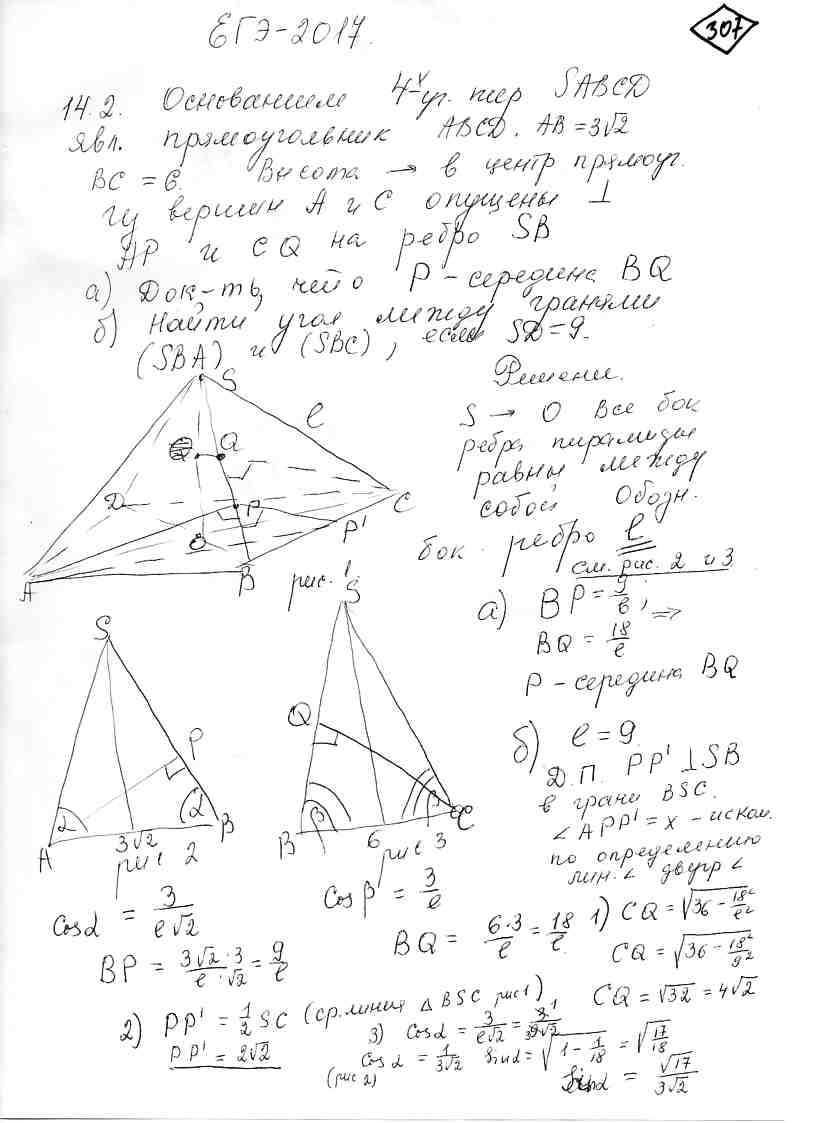 ЕГЭ-2017.
307
14.2. Основанием 4-х уг. пир SABCD
явл. прямоугольник ABCD. AB = 3√2
BC = 6. Высота → в центр прямоуг.
Из вершин A и C опущены ⊥
AP и CQ на ребро SB
а) Док-ть, что P - середина BQ
б) Найти угол между гранями
(SBA) и (SBC), если SD = 9.
Решение.
S → O Все бок
ребра пирамиды
равны между
собой Обозн.
бок. ребро l
см. рис. 2 и 3
S
l
Q
D
P
C
P'
O
A
B
рис. 1
а) BP = 9/l, =>
BQ = 18/l
P - середина BQ
S
P
α
α
A
3√2
B
рис 2
S
Q
β
β
B
6
C
рис 3
б) l = 9
Д.П. PP' ⊥ SB
в грани BSC.
∠APP' = x - иском.
по определению
лин. ∠ двугр ∠
Cosα = 3/(l√2)
BP = (3√2 · 3)/(l · √2) = 9/l
Cosβ = 3/l
BQ = (6·3)/l = 18/l
1) CQ = √(36 - 18²/l²)
CQ = √(36 - 18²/9²)
CQ = √32 = 4√2
2) PP' = 1/2 SC (ср. линия Δ BSC рис 1)
PP' = 2√2
3) Cosα = 3/(l√2) = 3/(9√2)
Cosα = 1/(3√2) Sinα = √(1 - 1/18) = √(17/18)
(рис 2)
Sinα = √17/(3√2)